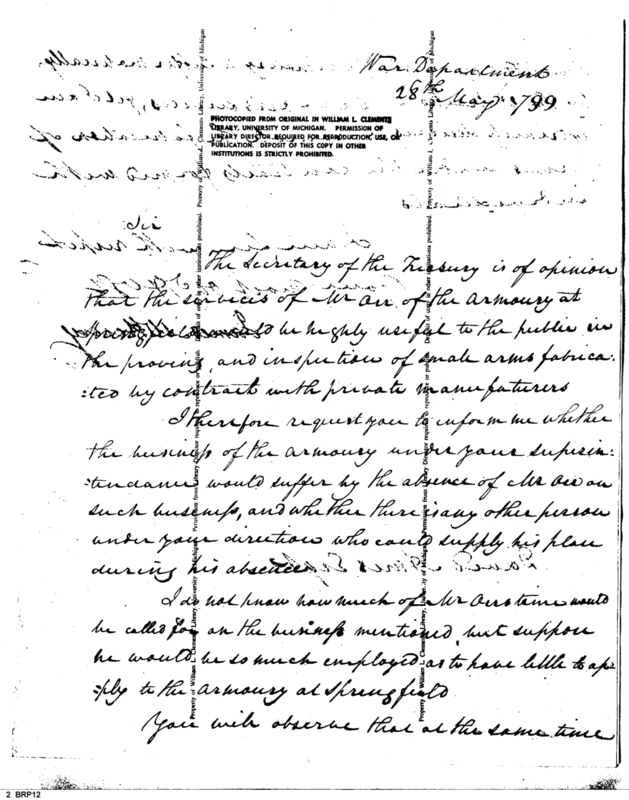 War Department
28th May 1799
PHOTOCOPIED FROM ORIGINAL IN WILLIAM L. CLEMENTS
LIBRARY, UNIVERSITY OF MICHIGAN. PERMISSION OF
LIBRARY DIRECTOR REQUIRED FOR REPRODUCTION, USE, OR
PUBLICATION. DEPOSIT OF THIS COPY IN OTHER
INSTITUTIONS IS STRICTLY PROHIBITED.
Sir
The Secretary of the Treasury is of opinion
that the services of Mr Orr of the armoury at
would be highly useful to the public in
the proving, and inspection of small arms fabrica:
:ted by contract with private manufuturers
I therefore request you to inform me whether
the business of the armoury under your superin:
:tendance would suffer by the absence of Mr Orr on
such business, and whether there is any other person
under your direction who could supply his place
during his absence
I do not know how much of Mr Orrs time would
be called for on the business mentioned, but suppose
he would be so much employed as to have little to ap:
:ply to the armoury at Springfield
You will observe that at the same time
2 BRP12